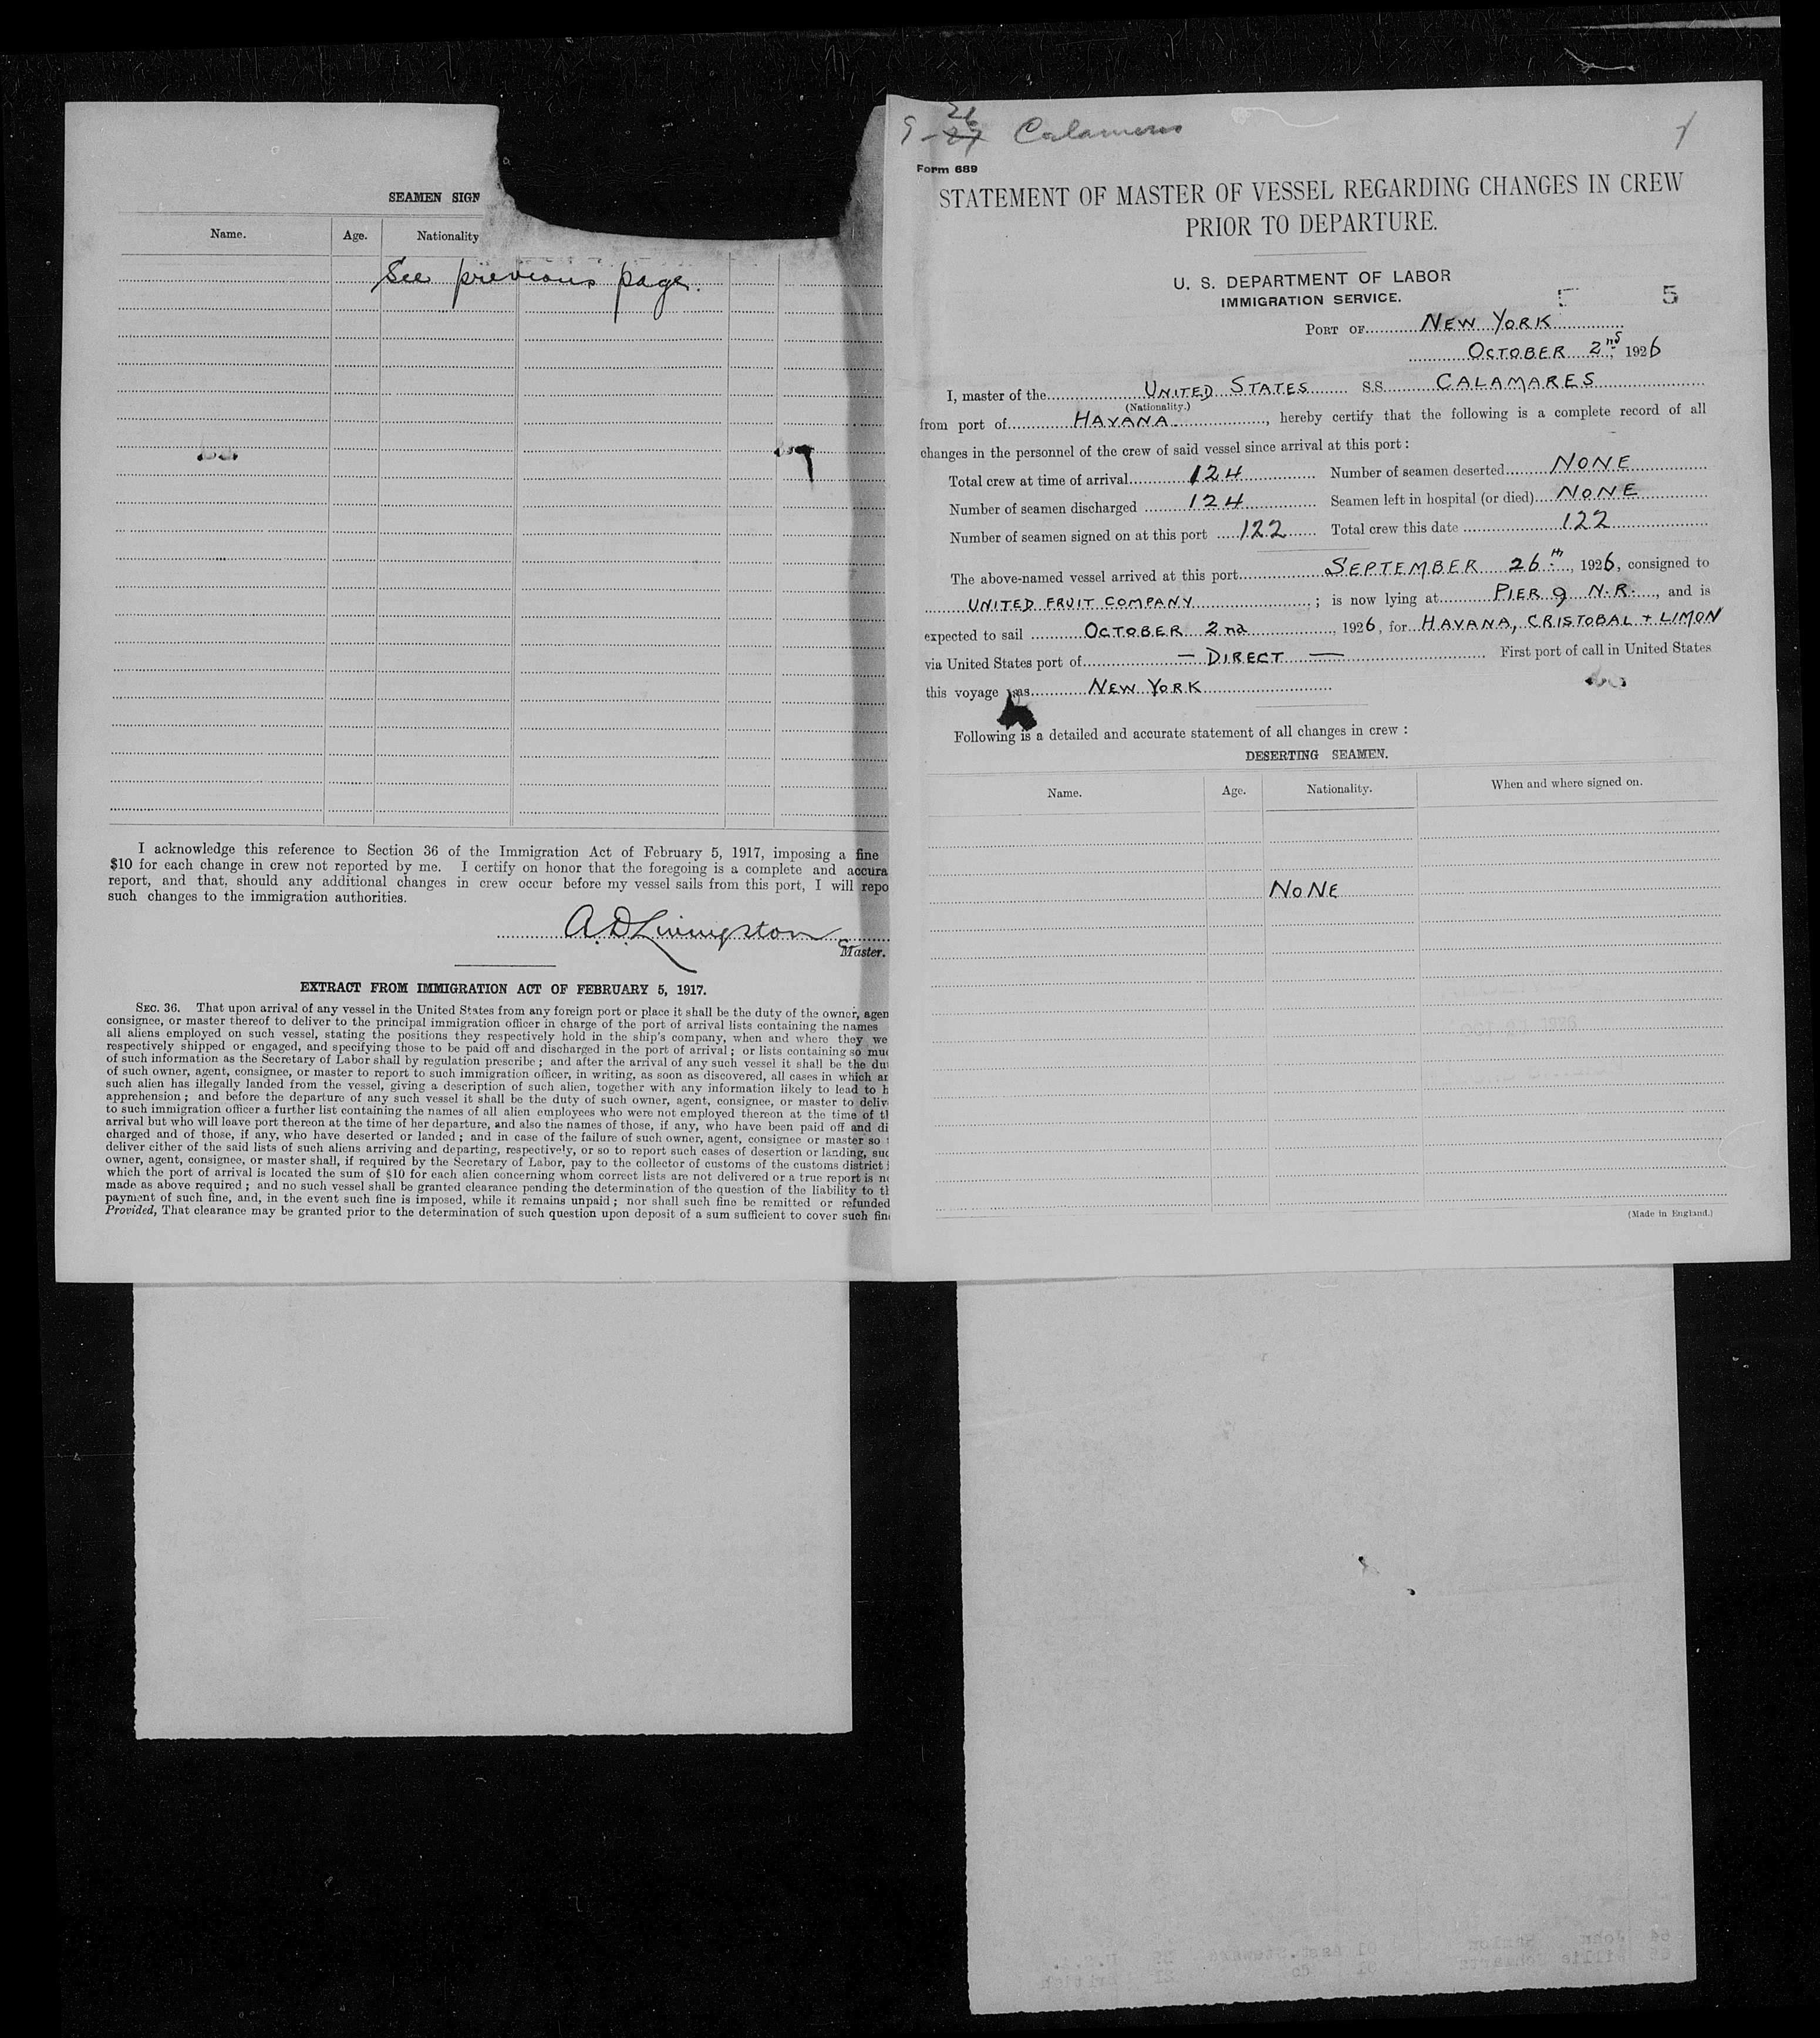 SEAMEN SIGN
Name. Age. Nationality
See previous page.
I acknowledge this reference to Section 36 of the Immigration Act of February 5, 1917, imposing a fine
$10 for each change in crew not reported by me. I certify on honor that the foregoing is a complete and accura
report, and that, should any additional changes in crew occur before my vessel sails from this port, I will repo
such changes to the immigration authorities.
A. D. Livingston
Master.
EXTRACT FROM IMMIGRATION ACT OF FEBRUARY 5, 1917.
SEC. 36. That upon arrival of any vessel in the United States from any foreign port or place it shall be the duty of the owner, agen
consignee, or master thereof to deliver to the principal immigration officer in charge of the port of arrival lists containing the names
all aliens employed on such vessel, stating the positions they respectively hold in the ship's company, when and where they we
respectively shipped or engaged, and specifying those to be paid off and discharged in the port of arrival; or lists containing so muc
of such information as the Secretary of Labor shall by regulation prescribe; and after the arrival of any such vessel it shall be the du
of such owner, agent, consignee, or master to report to such immigration officer, in writing, as soon as discovered, all cases in which an
such alien has illegally landed from the vessel, giving a description of such alien, together with any information likely to lead to h
apprehension; and before the departure of any such vessel it shall be the duty of such owner, agent, consignee, or master to deliv
to such immigration officer a further list containing the names of all alien employees who were not employed thereon at the time of th
arrival but who will leave port thereon at the time of her departure, and also the names of those, if any, who have been paid off and di
charged and of those, if any, who have deserted or landed; and in case of the failure of such owner, agent, consignee or master so
deliver either of the said lists of such aliens arriving and departing, respectively, or so to report such cases of desertion or landing, suc
owner, agent, consignee, or master shall, if required by the Secretary of Labor, pay to the collector of customs of the customs district i
which the port of arrival is located the sum of $10 for each alien concerning whom correct lists are not delivered or a true report is no
made as above required; and no such vessel shall be granted clearance pending the determination of the question of the liability to th
payment of such fine, and, in the event such fine is imposed, while it remains unpaid; nor shall such fine be remitted or refunded
Provided, That clearance may be granted prior to the determination of such question upon deposit of a sum sufficient to cover such fine
26
9-27 Calamares
Form 689
STATEMENT OF MASTER OF VESSEL REGARDING CHANGES IN CREW
PRIOR TO DEPARTURE.
U. S. DEPARTMENT OF LABOR
IMMIGRATION SERVICE.
5
PORT OF NEW YORK
OCTOBER 2nd, 1926
I, master of the UNITED STATES S.S. CALAMARES
(Nationality.)
from port of HAVANA, hereby certify that the following is a complete record of all
changes in the personnel of the crew of said vessel since arrival at this port:
Total crew at time of arrival 124 Number of seamen deserted NONE
Number of seamen discharged 124 Seamen left in hospital (or died) NONE
Number of seamen signed on at this port 122 Total crew this date 122
The above-named vessel arrived at this port SEPTEMBER 26th, 1926, consigned to
UNITED FRUIT COMPANY; is now lying at PIER 9 N.R., and is
expected to sail OCTOBER 2nd, 1926, for HAVANA, CRISTOBAL + LIMON
via United States port of — DIRECT — First port of call in United States
this voyage was NEW YORK
Following is a detailed and accurate statement of all changes in crew:
DESERTING SEAMEN.
Name. Age. Nationality. When and where signed on.
NONE
(Made in England.)